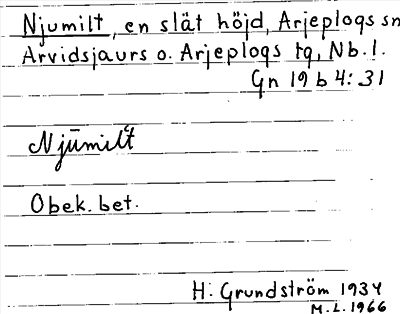 Njumilt, en slät höjd, Arjeplogs sn
Arvidsjaurs o. Arjeplogs tg, Nb. l.
Gn 19 b 4:31
Njūmilt
Obek. bet.
H. Grundström 1934
M.L. 1966